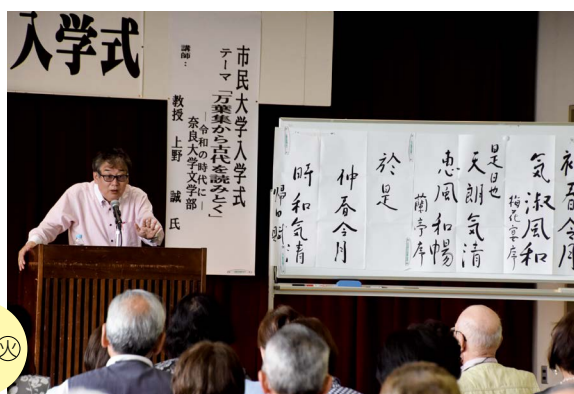 入学式
市民大学入学式
テーマ「万葉集から古代を読みとく」
―令和の時代に―
講師：
奈良大学文学部
教授 上野 誠 氏
初春令月
気淑風和
梅花宴序
是日也
天朗気清
恵風和暢
蘭亭序
於是
仲春令月
時和気清
帰田賦
火